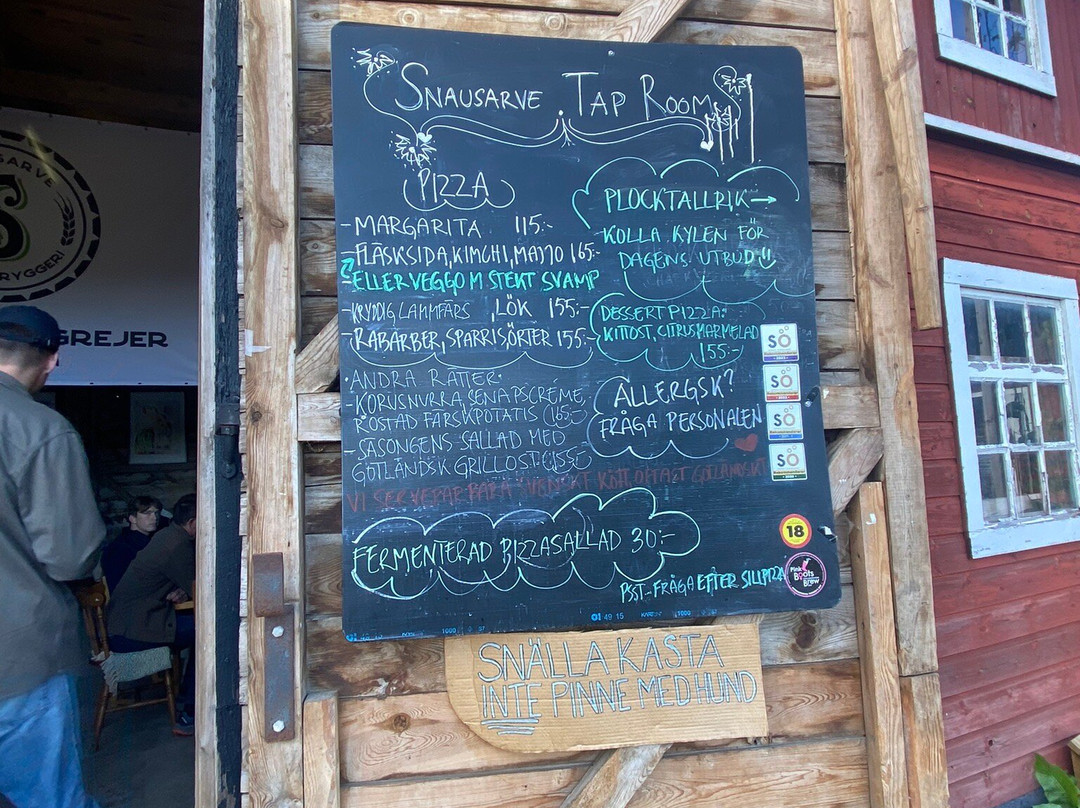 SNAUSARVE TAP ROOM
PIZZA
-MARGARITA 115:-
-FLÄSKSIDA, KIMCHI, MAJJO 165:-
-ELLER VEGGO M STEKT SVAMP
-KRYDDIG LAMMFÄRS, LÖK 155:-
-RABARBER, SPARRIS, ÖRTER 155:-
·ANDRA RÄTTER·
-KORVSNURRA, SENAPSCRÉME,
ROSTAD FÄRSKPOTATIS (165:-)
-SÄSONGENS SALLAD MED
GOTLÄNDSK GRILLOST
PLOCKTALLRIK→
KOLLA KYLEN FÖR
DAGENS UTBUD
DESSERTPIZZA:
KITTOST, CITRUSMARMELAD
155:-
ALLERGSK?
FRÅGA PERSONALEN
VI SERVERAR BARA SVENSKT KÖTT OFTAST GOTLÄNDSKT
FERMENTERAD PIZZASALLAD 30:-
PSST-FRÅGA EFTER SILLPIZZA
SÖ
SÖ
SÖ
SÖ
18
Pink Boots Brew
SNÄLLA KASTA
INTE PINNE MED HUND
SARVE
RYGGERI
GREJER